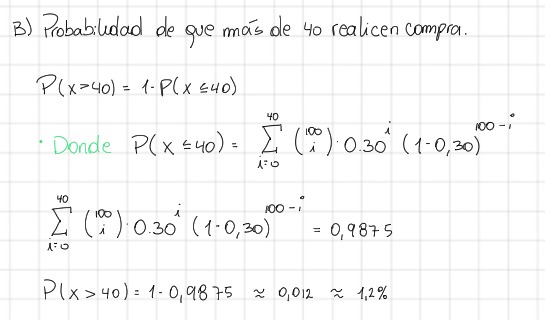 B) Probabilidad de que más de 40 realicen compra.
P(x>40) = 1-P(x ≤40)
· Donde P(x ≤40) = ∑_{i=0}^{40} (100 i) · 0.30^i (1-0,30)^{100-i}
∑_{i=0}^{40} (100 i) · 0.30^i (1-0,30)^{100-i} = 0,9875
P(x > 40) = 1-0,9875 ≈ 0,012 ≈ 1,2%